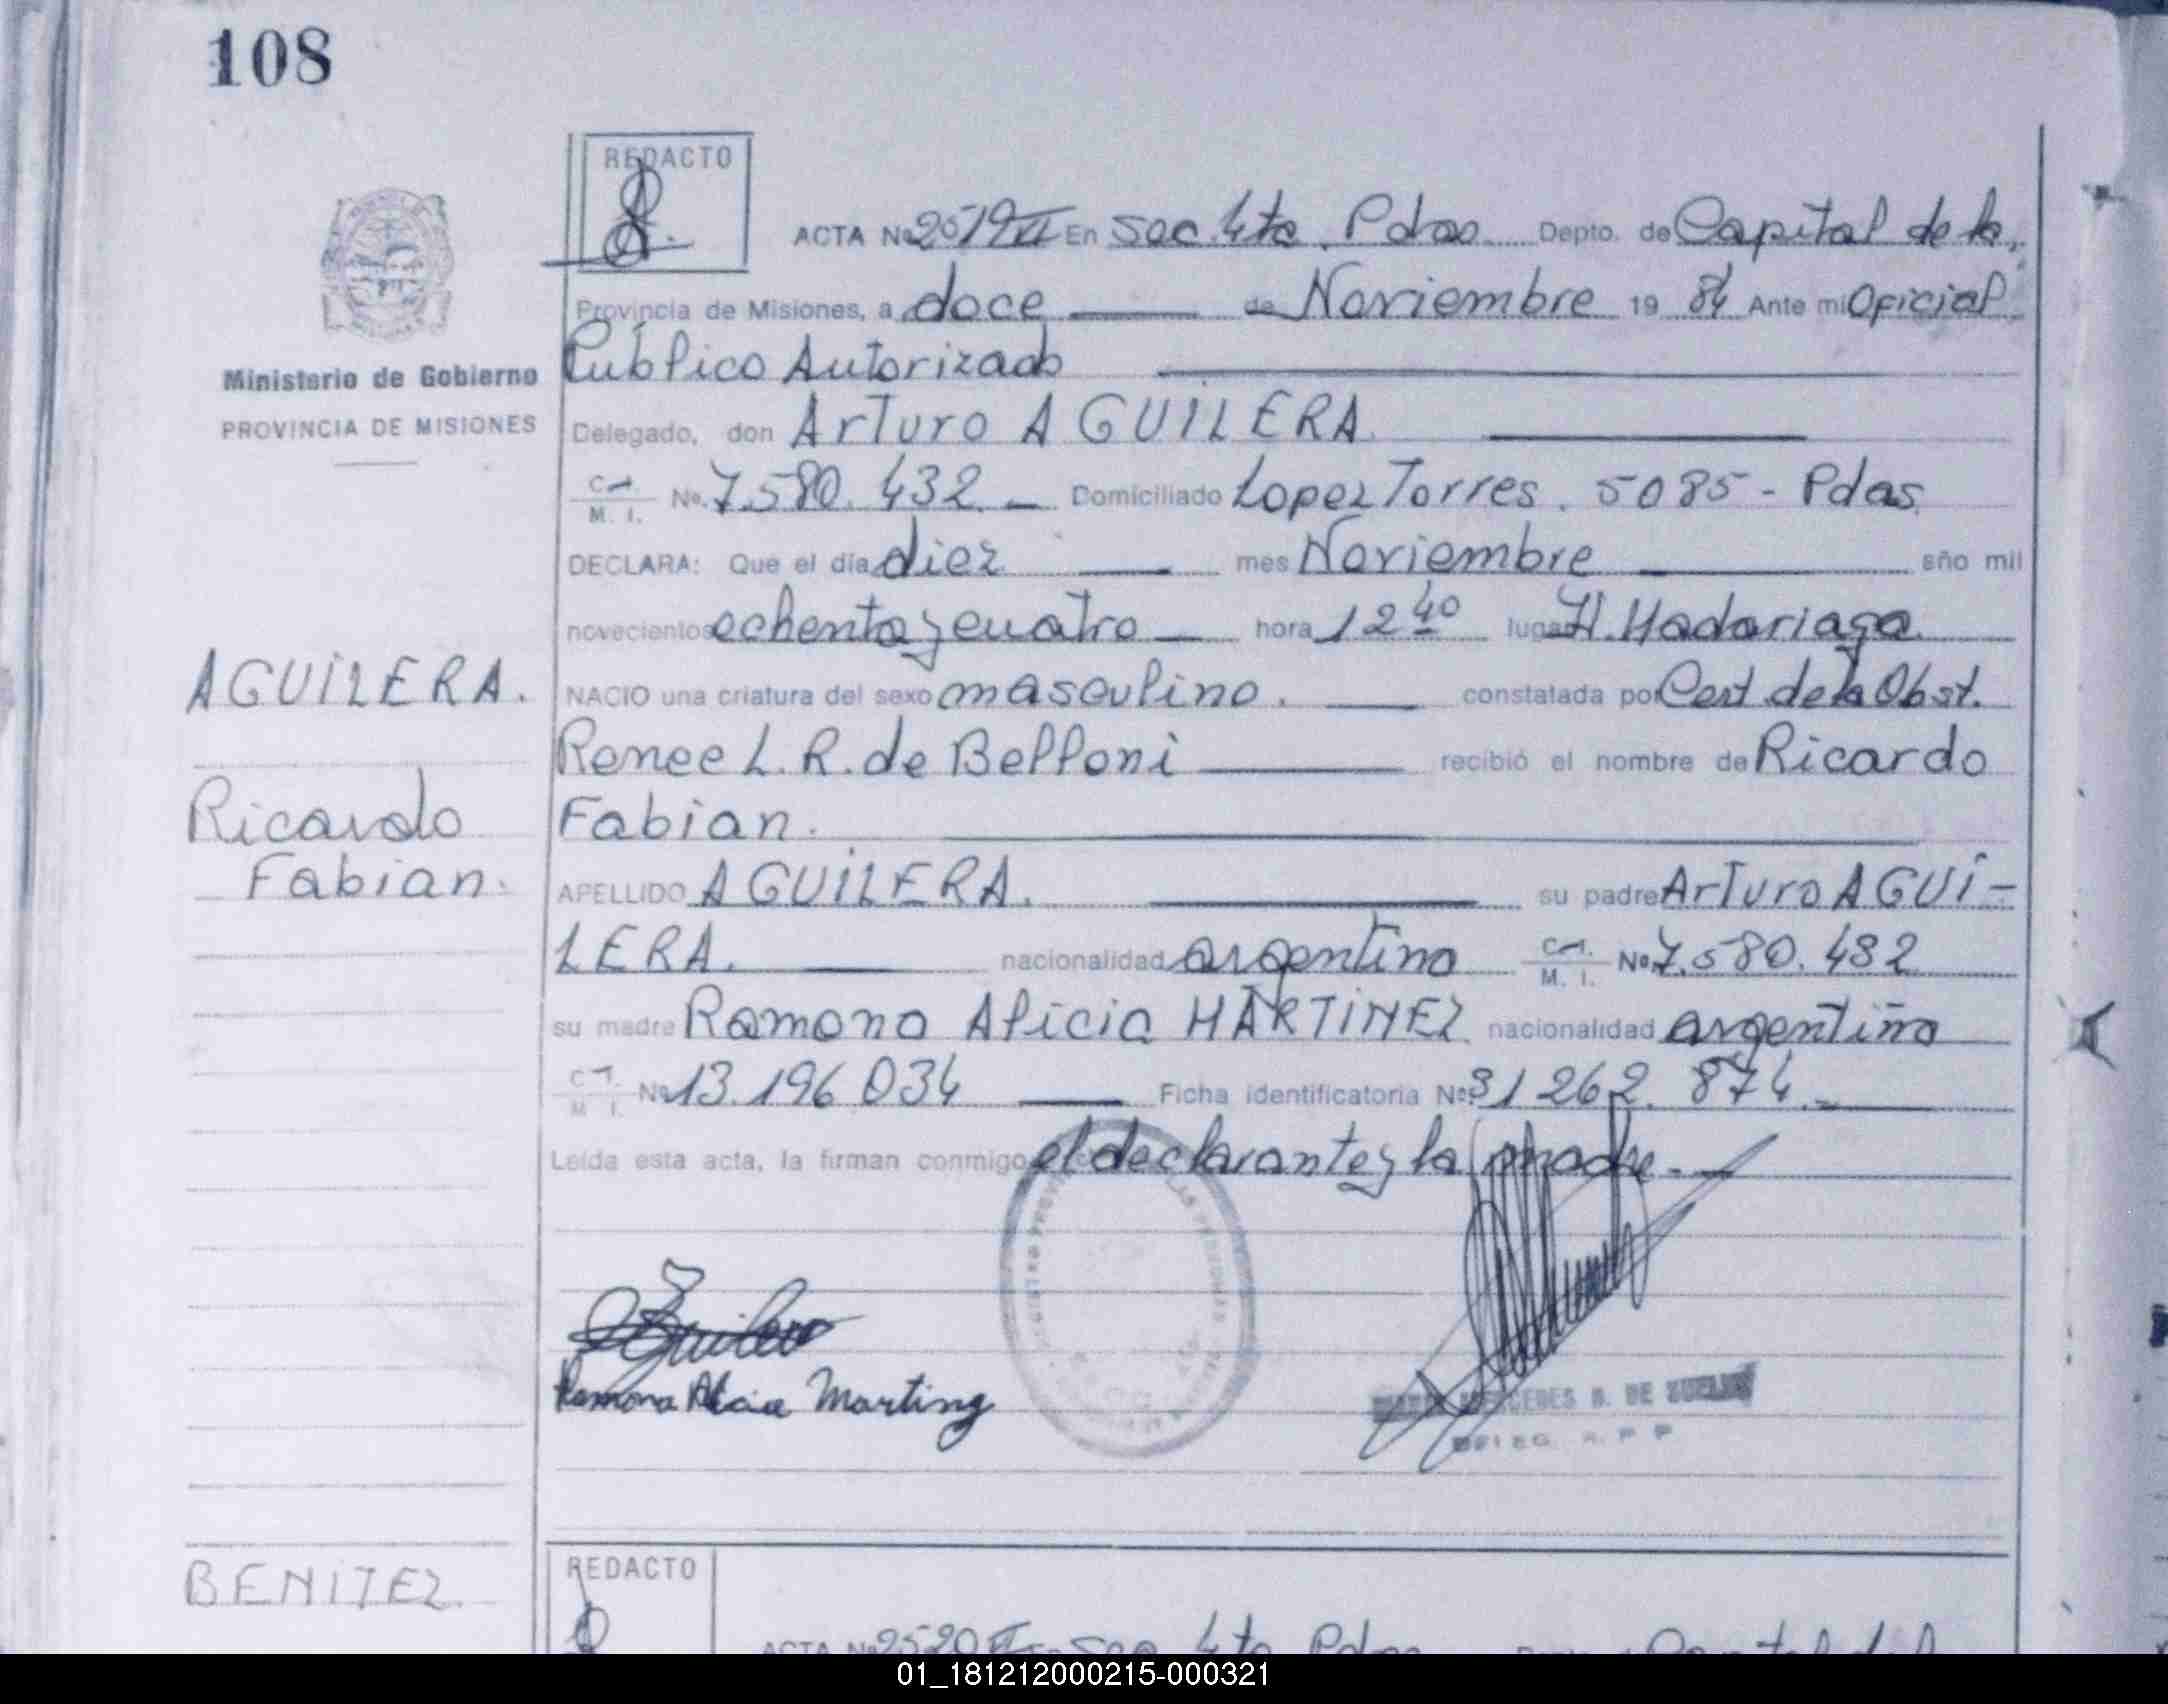 108
REDACTO
ACTA No 2519 VI En Sec. 4ta Pdas Depto. de Capital de la
Provincia de Misiones, a doce de Noviembre 19 84 Ante mi Oficial
Público Autorizado
Ministerio de Gobierno
PROVINCIA DE MISIONES
Delegado, don Arturo AGUILERA.
M. I. No. 7.580.432.- Domiciliado Lopez Torres. 5085 - Pdas
DECLARA: Que el día diez mes Noviembre año mil
novecientos ochenta y cuatro hora 12 40 lugar H. Madariaga
AGUILERA.
NACIO una criatura del sexo masculino. constatada por Cert. de la Obst.
Renee L. R. de Belloni recibió el nombre de Ricardo
Ricardo
Fabian.
Fabian.
APELLIDO AGUILERA. su padre Arturo AGUI-
LERA. nacionalidad argentino M. I. No 7.580.432
su madre Ramona Alicia MARTINEZ nacionalidad argentina
M. I. No 13.196.034 Ficha identificatoria No 31 262. 874.-
Leída esta acta, la firman conmigo el declarante y la madre.-
Ramona Alicia Martinez
MERCEDES B. DE
DELEG. R. P P
BENITEZ.
REDACTO
ACTA No 2520 VI En Sec 4ta Pdas
01_181212000215-000321